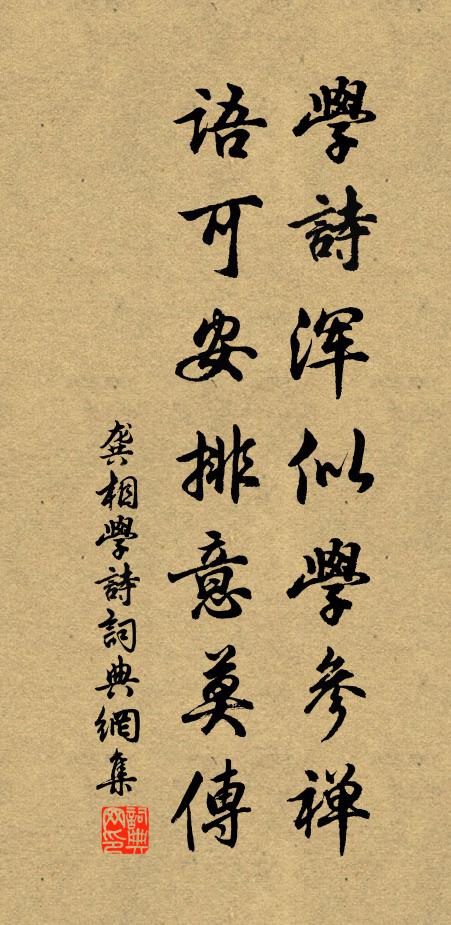 學詩浑似學参禅
语可安排意莫傳
龚相學詩詞典網集
詞典网印